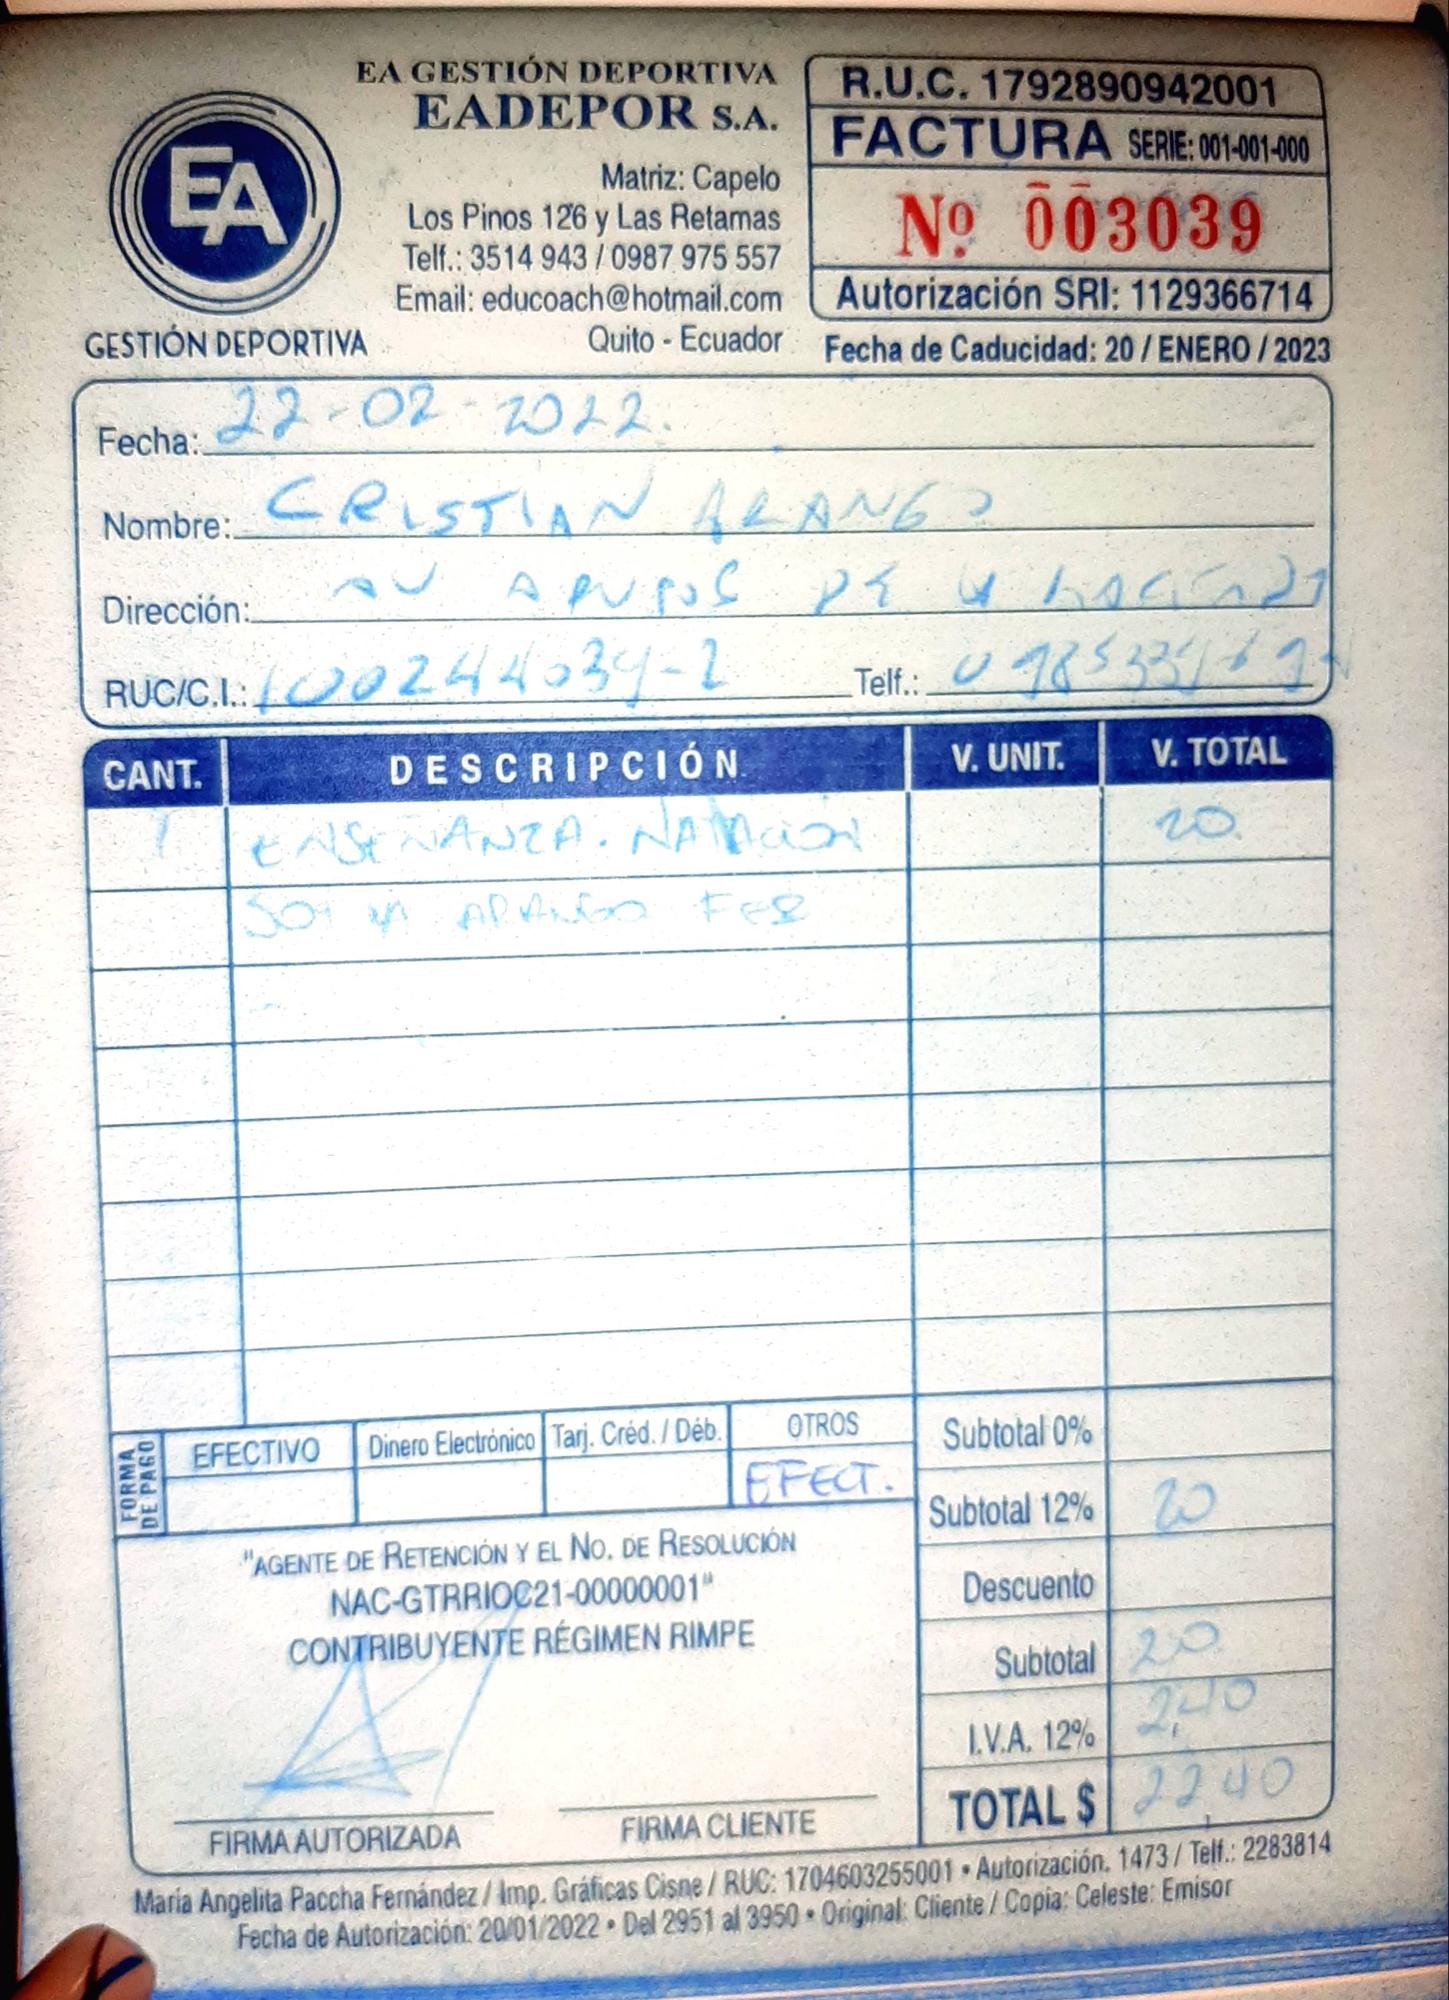 EA GESTIÓN DEPORTIVA
EADEPOR S.A.
EA
GESTIÓN DEPORTIVA
Matriz: Capelo
Los Pinos 126 y Las Retamas
Telf.: 3514 943 / 0987 975 557
Email: educoach@hotmail.com
Quito - Ecuador
R.U.C. 1792890942001
FACTURA SERIE: 001-001-000
Nº 003039
Autorización SRI: 1129366714
Fecha de Caducidad: 20 / ENERO / 2023
Fecha: 22-02-2022.
Nombre: CRISTIAN ARANGO
Dirección: AV DE LA
RUC/C.I.: 100244034-2 Telf.:
CANT. DESCRIPCIÓN V. UNIT. V. TOTAL
1 ENSEÑANZA. NATACIÓN 20
ARANGO FEB
FORMA DE PAGO
EFECTIVO Dinero Electrónico Tarj. Créd. / Déb. OTROS
EFECT.
Subtotal 0%
Subtotal 12% 20
Descuento
Subtotal 20
I.V.A. 12% 2,40
TOTAL $ 22,40
"AGENTE DE RETENCIÓN Y EL NO. DE RESOLUCIÓN
NAC-GTRRIOC21-00000001"
CONTRIBUYENTE RÉGIMEN RIMPE
FIRMA AUTORIZADA FIRMA CLIENTE
María Angelita Paccha Fernández / Imp. Gráficas Cisne / RUC: 1704603255001 • Autorización. 1473 / Telf.: 2283814
Fecha de Autorización: 20/01/2022 • Del 2951 al 3950 • Original: Cliente / Copia: Celeste: Emisor